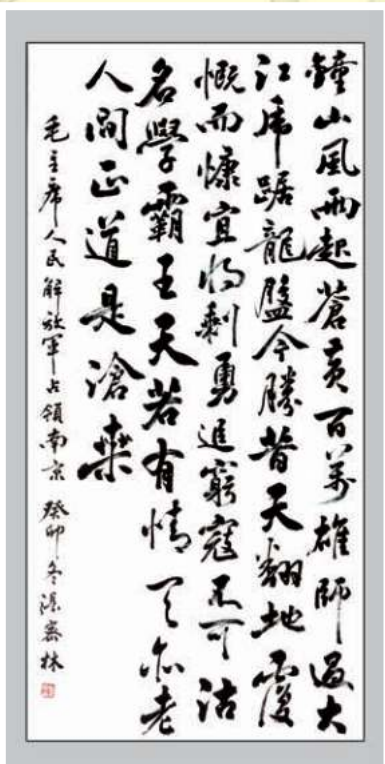 鐘山風雨起蒼黃百萬雄師過大
江虎踞龍盤今勝昔天翻地覆
慨而慷宜將剩勇追窮寇不可沽
名學霸王天若有情天亦老
人間正道是滄桑
毛主席人民解放軍占領南京 癸卯冬 林